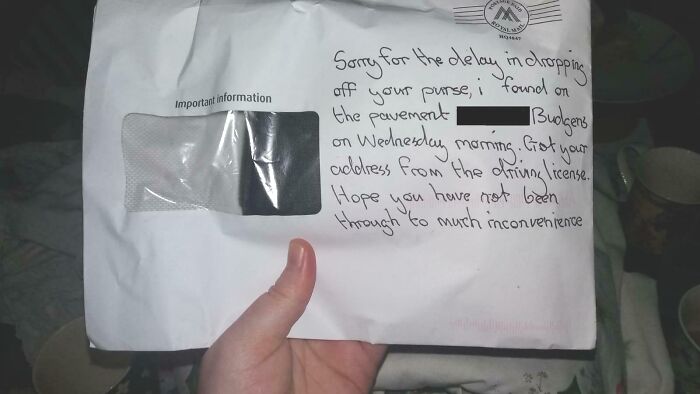 POSTAGE PAID
ROYAL MAIL
HQ4847
Important information
Sorry for the delay in dropping
off your purse, i found on
the pavement Budgens
on Wednesday morning. Got your
address from the driving license.
Hope you have not been
through to much inconvenience